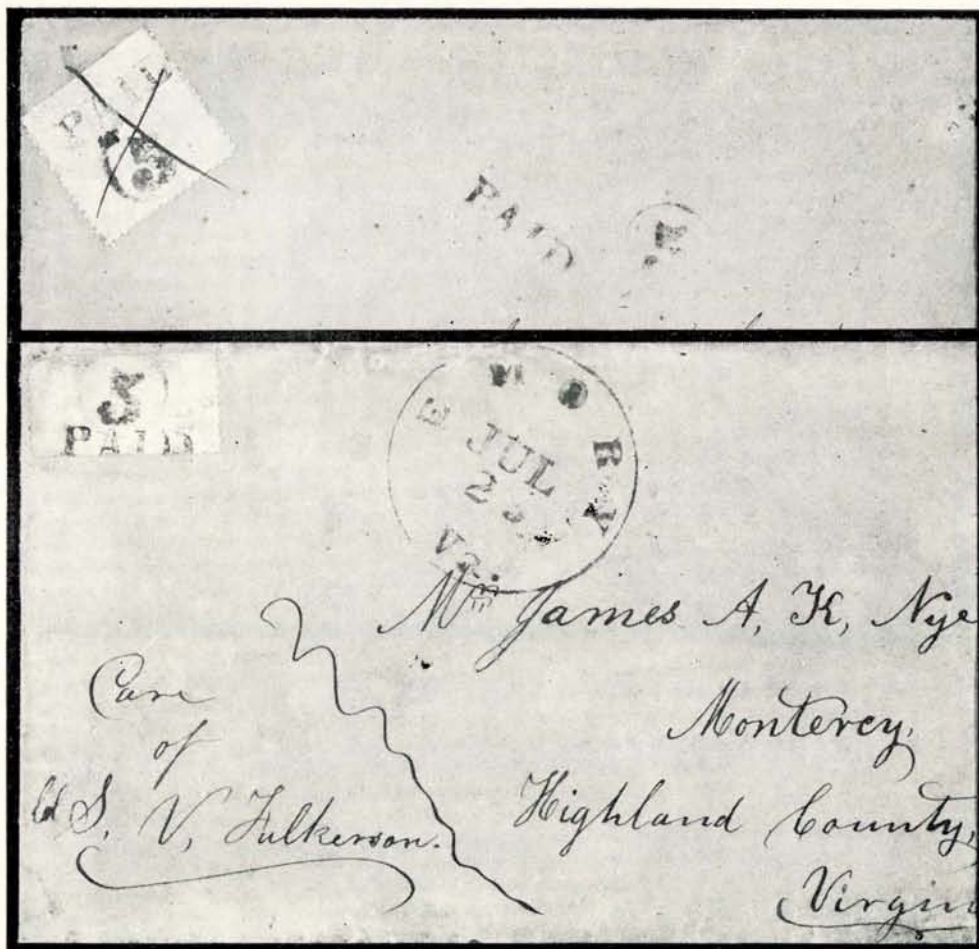 PAID
5
PAID
5
PAID
EMORY
JUL
Va.
Mr James A, K, Nye
Monterey,
Highland County,
Care
of
Col S, V, Fulkerson.